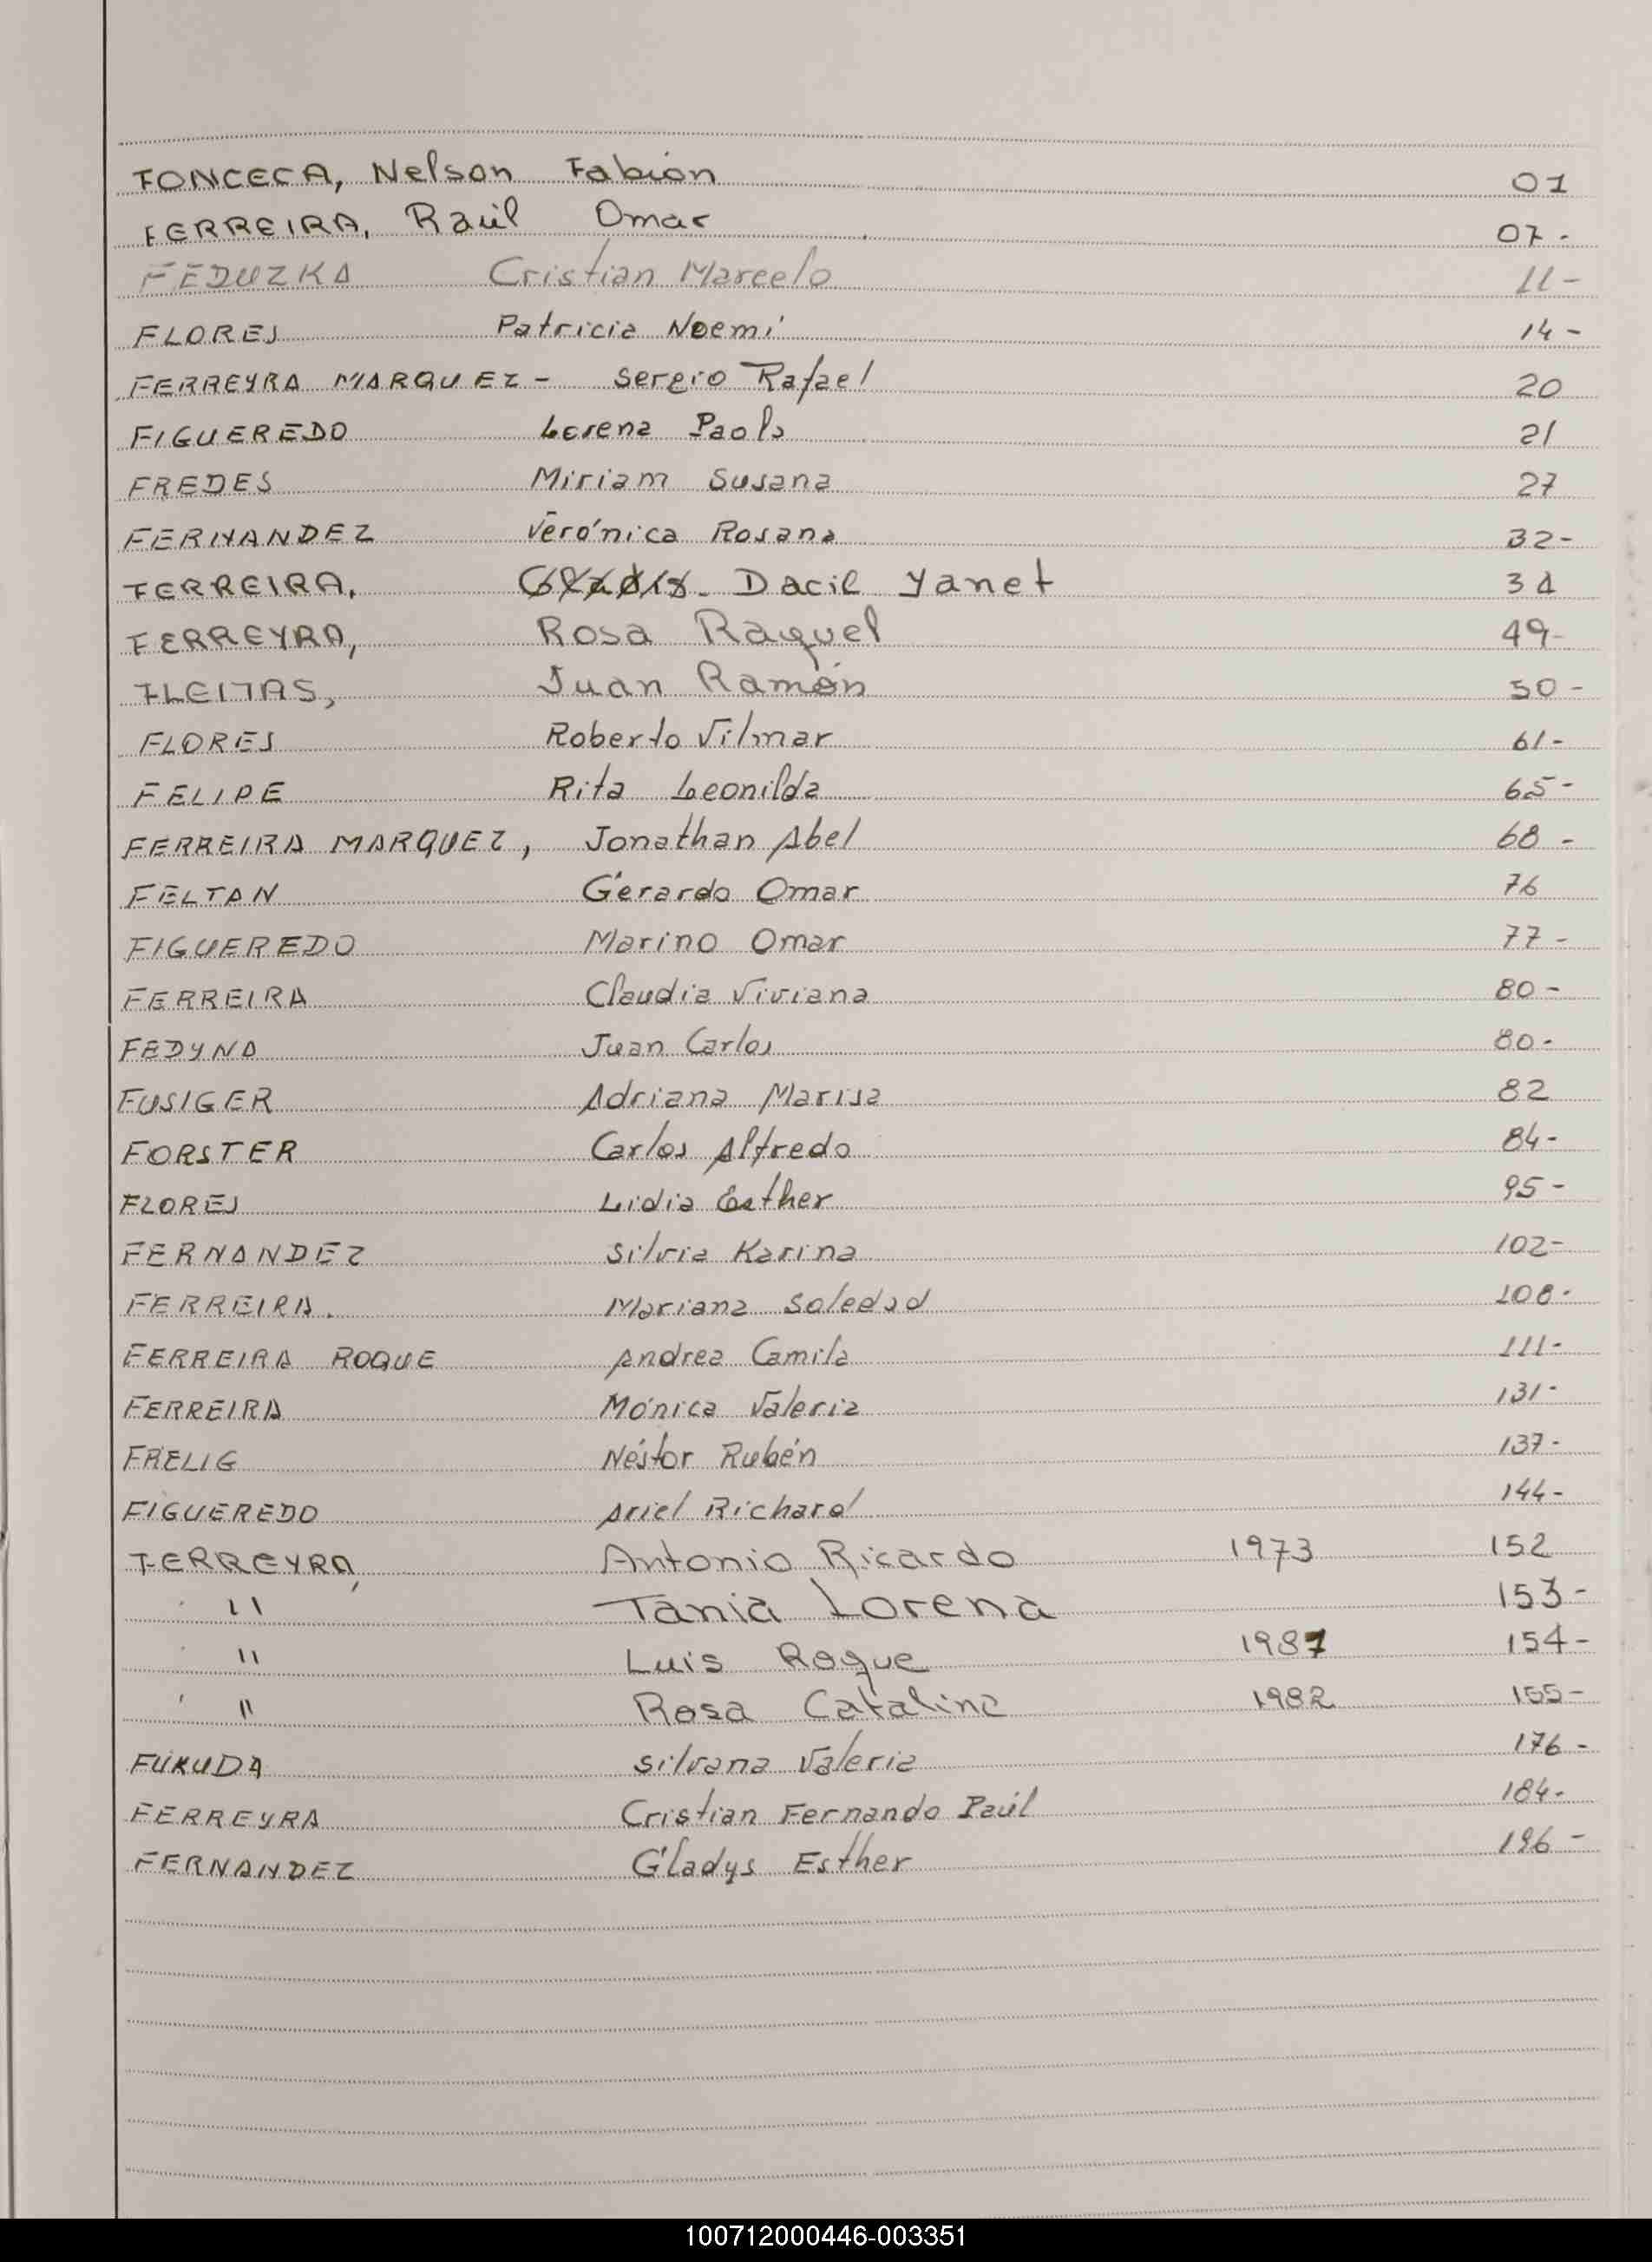 FONCECA, Nelson Fabion 01
FERREIRA, Raúl Omar 07-
FEDUZKA Cristian Marcelo 11-
FLORES Patricia Noemí 14-
FERREYRA MARQUEZ- Sergio Rafael 20
FIGUEREDO Lorena Paola 21
FREDES Miriam Susana 27
FERNANDEZ Verónica Rosana 32-
FERREIRA, Dacil Yanet 34
FERREYRA, Rosa Raquel 49-
FLEITAS, Juan Ramón 50-
FLORES Roberto Vilmar 61-
FELIPE Rita Leonilda 65-
FERREIRA MARQUEZ, Jonathan Abel 68-
FELTAN Gerardo Omar 76
FIGUEREDO Marino Omar 77-
FERREIRA Claudia Viviana 80-
FEDYNA Juan Carlos 80-
FUSIGER Adriana Marisa 82
FORSTER Carlos Alfredo 84-
FLORES Lidia Esther 95-
FERNANDEZ Silvia Karina 102-
FERREIRA. Mariana Soledad 108-
FERREIRA ROQUE Andrea Camila 111-
FERREIRA Mónica Valeria 131-
FRELIG Néstor Rubén 137-
FIGUEREDO Ariel Richard 144-
FERREYRA, Antonio Ricardo 1973 152
" Tania Lorena 153-
" Luis Roque 1987 154-
" Rosa Catalina 1982 155-
FUKUDA Silvana Valeria 176-
FERREYRA Cristian Fernando Paúl 184-
FERNANDEZ Gladys Esther 196-
100712000446-003351